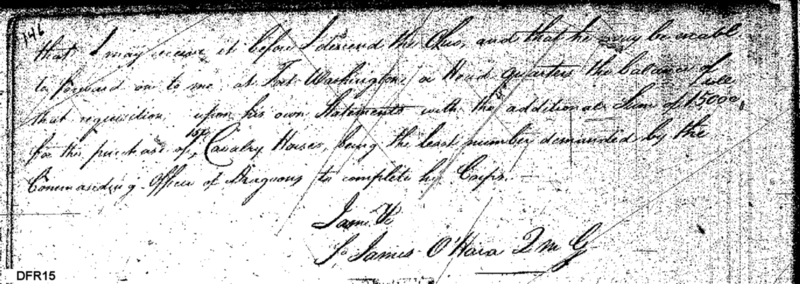 146
that I may receive it before I descend the Ohio, and that he may be enabl
to forward on to me at Fort Washington or Head quarters the balance of
that requisition, upon his own Statements with the additional Sum of 15000,
for the purchase of Cavalry Horses, being the least number demanded by the
Commanding Officer of Dragoons to complete his Corps.
I am &c
James O'Hara Q M G
DFR15